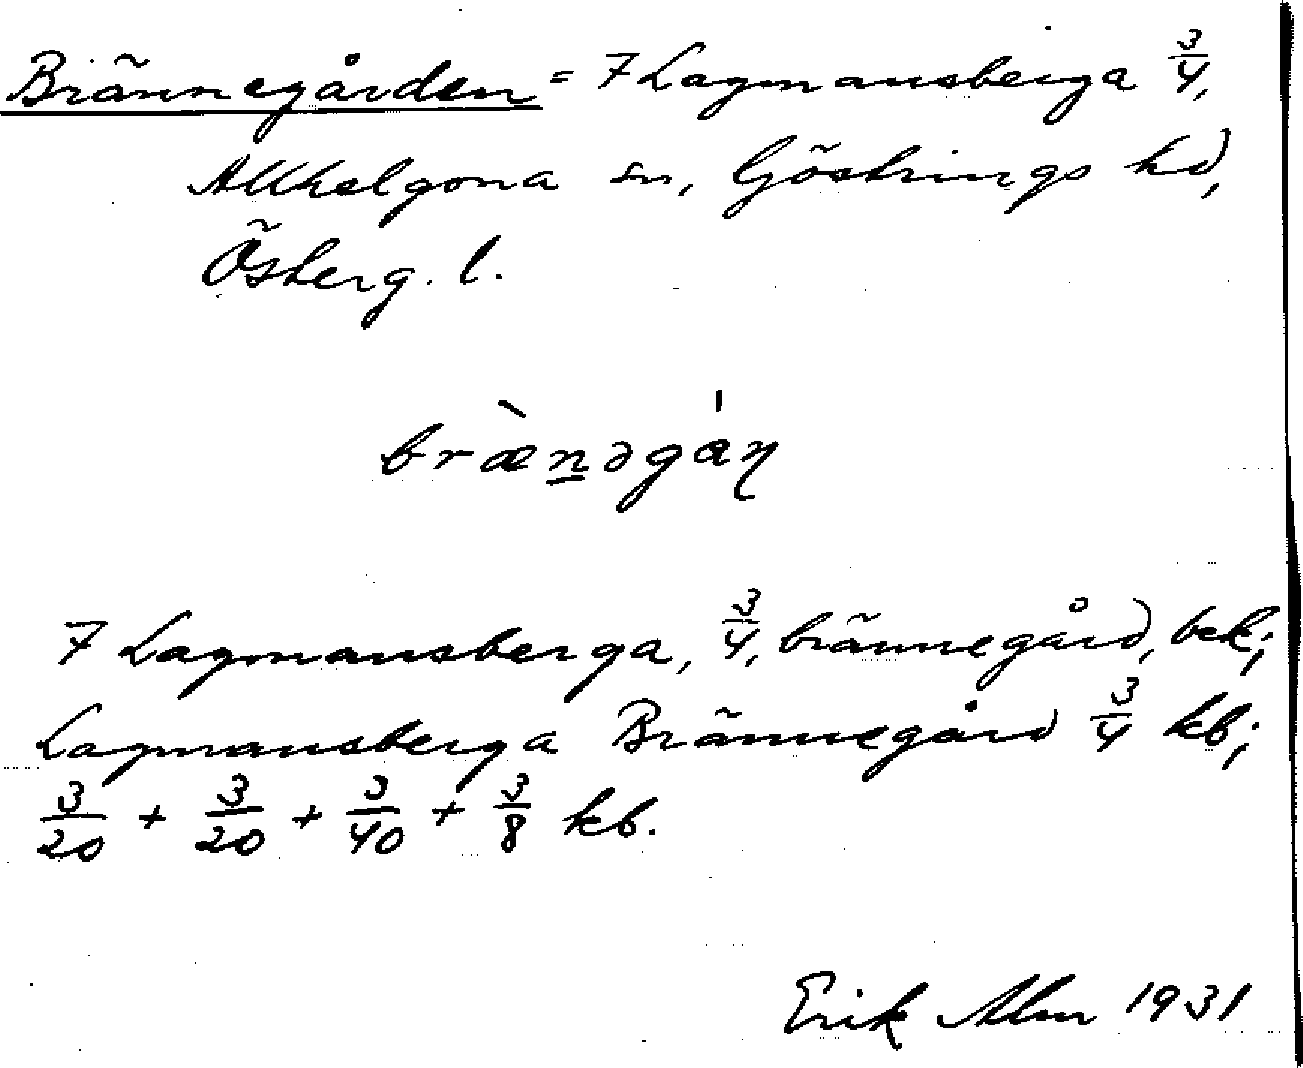 Brännegården = 7 Lagmansberga 3/4,
Allhelgona sn, Göstrings hd,
Österg. l.
bræ̀n̲əgáɳ
7 Lagmansberga, 3/4, brännegård, bek;
Lagmansberga Brännegård 3/4 kb;
3/20 + 3/20 + 3/40 + 3/8 kb.
Erik Alm 1931